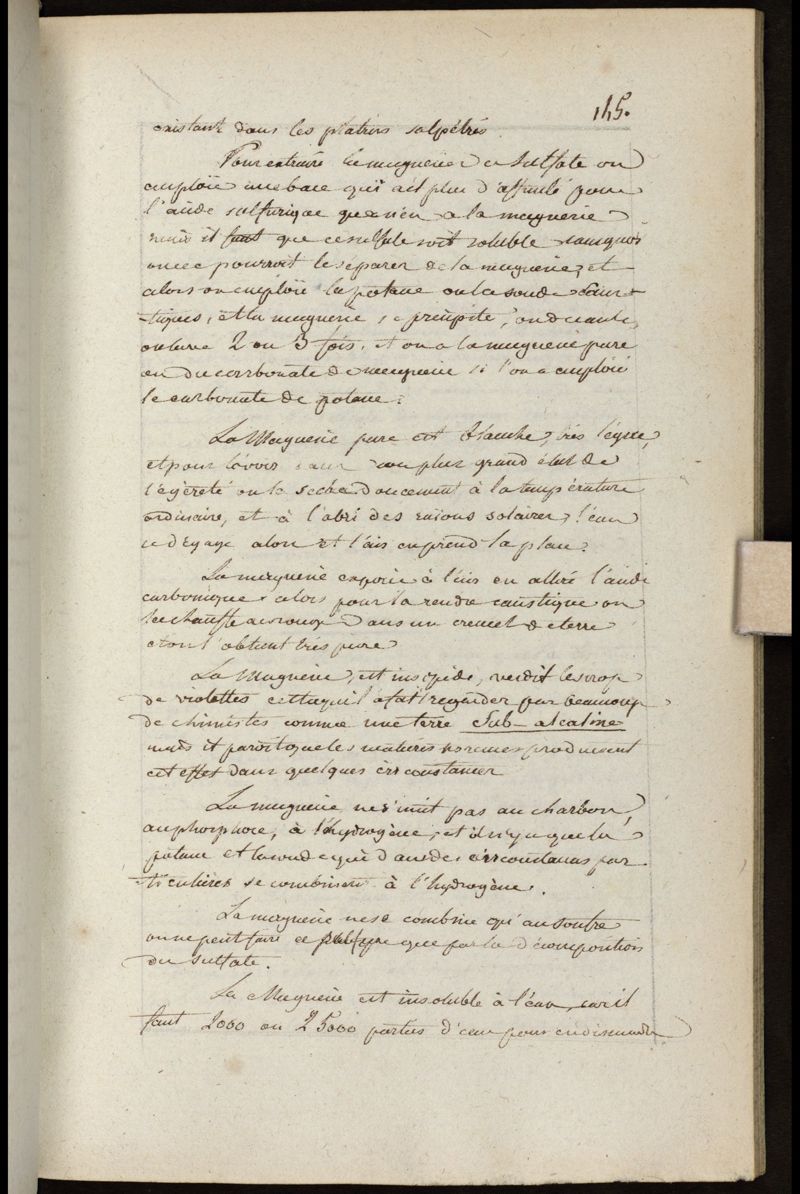 145.
existant dans les platras salpêtrés
Pour extraire la magnésie du sulfate on
emploïe une base qui ait plus d'affinité pour
l'acide sulfurique que n'en a la magnésie
mais il faut que ce sulfate soit soluble sans quoi
on ne pourroit le séparer de la magnésie, et
alors on emploïe la potasse ou la soude caus-
-tiques, et la magnésie se précipite, on décante,
on lave 2 ou 3 fois, et on a la magnésie pure
ou du carbonate de magnésie si l'on a emploïé
le carbonate de potasse.
La Magnésie pure est blanche, très légère,
et pour l'avoir dans son plus grand état de
légèreté on la sèche doucement à la température
ordinaire, et à l'abri des raïons solaires, l'eau
se dégage alors et l'air en prend la place.
La magnésie exposée à l'air en attire l'acide
carbonique alors pour la rendre caustique on
la chauffe au rouge dans un creuset de terre
et on l'obtient très pure
La Magnésie, est insipide, verdit le sirop
de violettes ce qui l'a fait regarder par beaucoup
de chimistes comme une terre Sub-alcaline
mais il paroit que les matières terreuses produisent
cet effet dans quelques circonstances
La magnésie ne s'unit pas au charbon,
au phosphore, à l'hydrogène, et il n'y a que la
potasse et la soude qui dans des circonstances par-
-ticulières se combinent à l'hydrogène.
La magnésie ne se combine qu'au soufre
on ne peut faire ce sulfure que par la décomposition
du sulfate.
La Magnésie est insoluble à l'eau, car il
faut 2000 ou 25000 parties d'eau pour en dissoudre